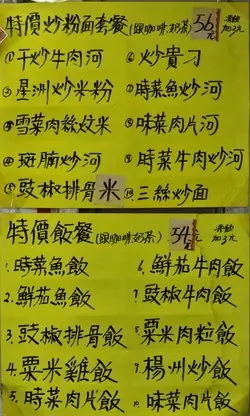 特價炒粉面套餐(跟咖啡.奶茶) 56元 凍飲加3元
①干炒牛肉河 ⑥炒貴刁
②星洲炒米粉 ⑦時菜魚炒河
③雪菜肉絲炆米 ⑧味菜肉片河
④斑腩炒河 ⑨時菜牛肉炒河
⑤豉椒排骨米 ⑩三絲炒面
特價飯餐(跟咖啡奶茶) 54元 凍飲加3元
1.時菜魚飯 6.鮮茄牛肉飯
2.鮮茄魚飯 7.豉椒牛肉飯
3.豉椒排骨飯 8.粟米肉粒飯
4.粟米雞飯 9.楊州炒飯
5.時菜肉片飯 10.味菜肉片飯